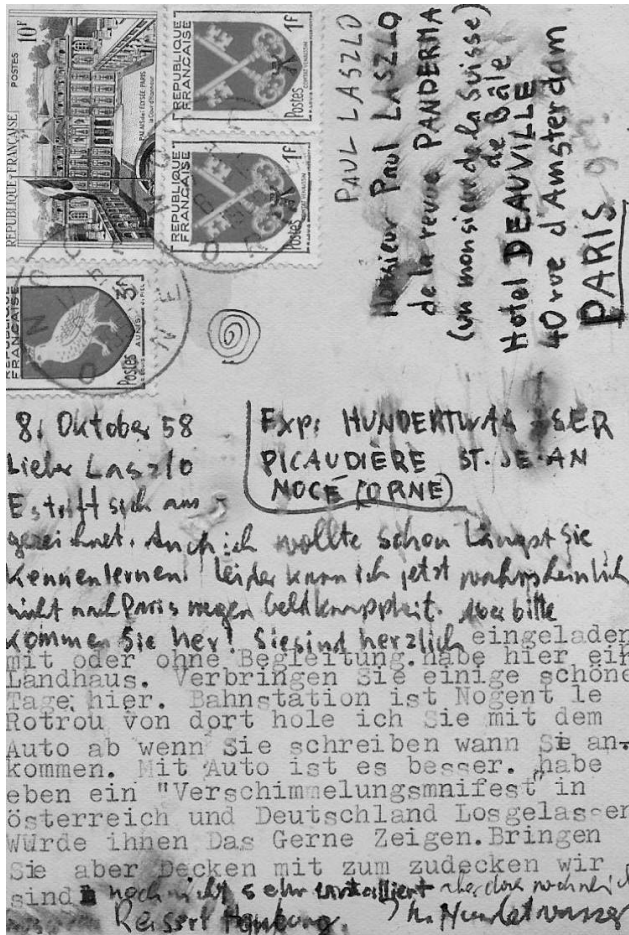 POSTES
10F
REPUBLIQUE FRANÇAISE
REPUBLIQUE
FRANÇAISE
Postes
1F
REPUBLIQUE
FRANÇAISE
Postes
1F
FRANÇAISE
Postes
3F
NOCÉ
ORNE
PAUL LASZLO
Monsieur Paul LASZLO
de la revue PANDERMA
(un monsieur de la Suisse)
de Bâle
Hotel DEAUVILLE
40 rue d'Amsterdam
PARIS
Exp: HUNDERTWASSER
PICAUDIÈRE ST. JEAN
NOCÉ (ORNE)
8. Oktober 58
Lieber Laszlo
Es trifft sich aus-
gezeichnet. Auch ich wollte schon Längst sie
Kennenlernen. Leider kann ich jetzt wahrscheinlich
nicht nach Paris wegen Geldknappheit. Aber bitte
kommen Sie her! Sie sind herzlich eingeladen
mit oder ohne Begleitung. habe hier ein
Landhaus. Verbringen Sie einige schöne
Tage hier. Bahnstation ist Nogent le
Rotrou von dort hole ich Sie mit dem
Auto ab wenn Sie schreiben wann Sie an-
kommen. Mit Auto ist es besser. habe
eben ein "Verschimmelungsmnifest" in
österreich und Deutschland Losgelassen
Würde ihnen Das Gerne Zeigen. Bringen
Sie aber Decken mit zum zudecken wir
sind noch nicht sehr installiert aber
Hundertwasser